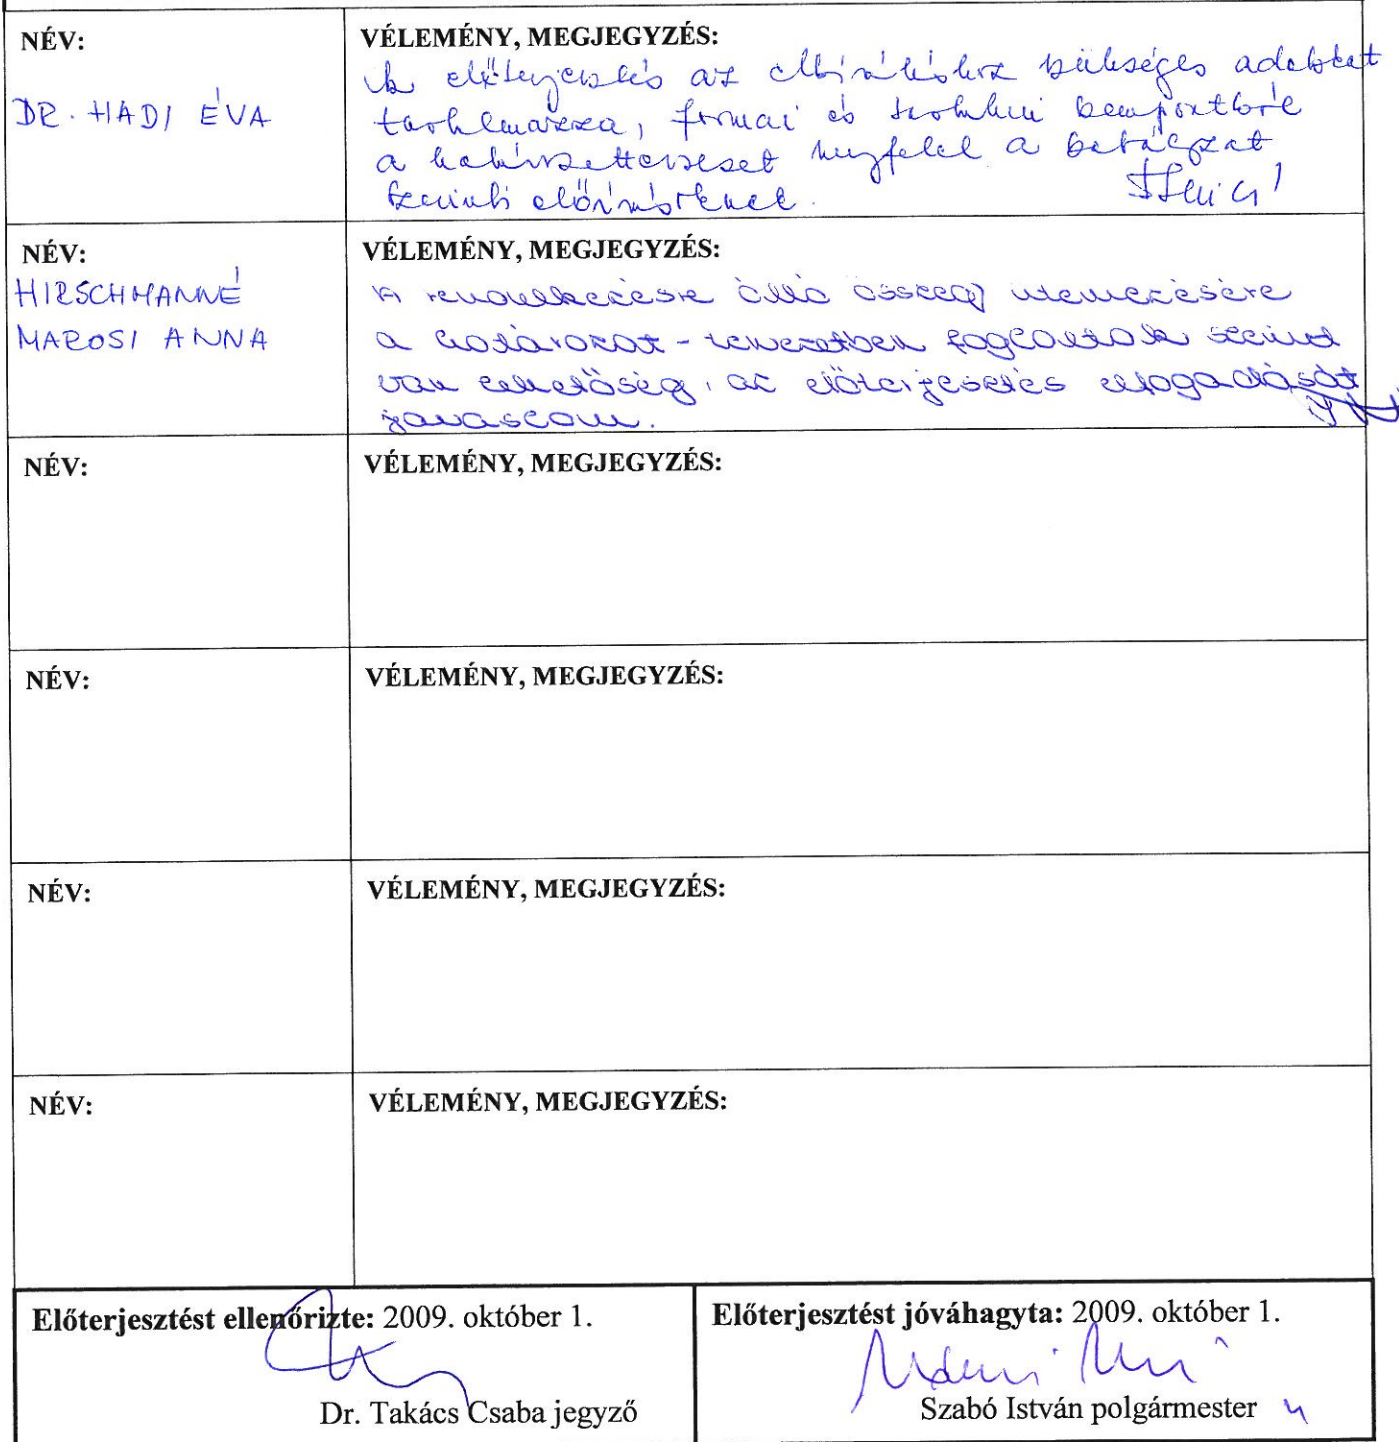 NÉV:
VÉLEMÉNY, MEGJEGYZÉS:
DR. HADI ÉVA
Az előterjesztés az elbíráláshoz szükséges adatokat
tartalmazza, formai és tartalmi szempontból
a megfelel a
szerinti előírásoknak.
NÉV:
VÉLEMÉNY, MEGJEGYZÉS:
HIRSCHMANNÉ
MAROSI ANNA
A rendelkezésre álló összeg ütemezésére
a határozat-tervezetben foglaltak szerint
van lehetőség, az előterjesztés elfogadását
javaslom.
NÉV:
VÉLEMÉNY, MEGJEGYZÉS:
NÉV:
VÉLEMÉNY, MEGJEGYZÉS:
NÉV:
VÉLEMÉNY, MEGJEGYZÉS:
NÉV:
VÉLEMÉNY, MEGJEGYZÉS:
Előterjesztést ellenőrizte: 2009. október 1.
Dr. Takács Csaba jegyző
Előterjesztést jóváhagyta: 2009. október 1.
Szabó István polgármester